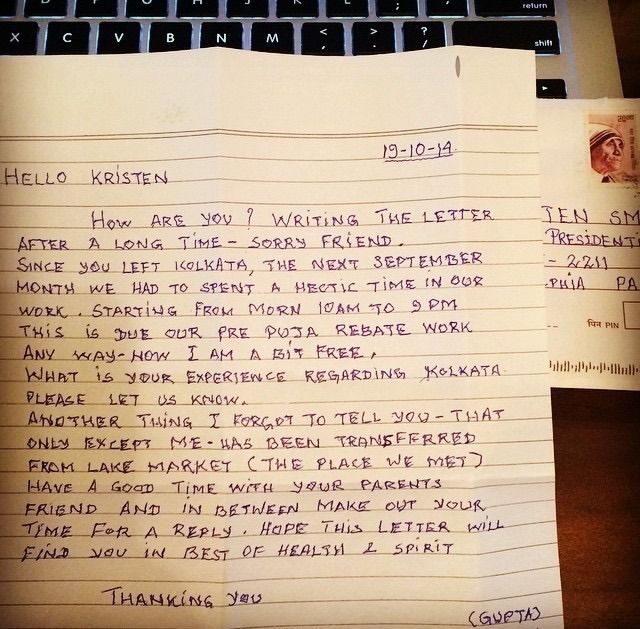 return
X C V B N M < , > . ? / shift
19-10-14
HELLO KRISTEN
HOW ARE YOU ? WRITING THE LETTER
AFTER A LONG TIME - SORRY FRIEND.
SINCE YOU LEFT KOLKATA, THE NEXT SEPTEMBER
MONTH WE HAD TO SPENT A HECTIC TIME IN OUR
WORK. STARTING FROM MORN 10AM TO 9 PM
THIS IS DUE OUR PRE PUJA REBATE WORK
ANY WAY-NOW I AM A BIT FREE.
WHAT IS YOUR EXPERIENCE REGARDING KOLKATA
PLEASE LET US KNOW.
ANOTHER THING I FORGOT TO TELL YOU - THAT
ONLY EXCEPT ME-HAS BEEN TRANSFERRED
FROM LAKE MARKET (THE PLACE WE MET)
HAVE A GOOD TIME WITH YOUR PARENTS
FRIEND AND IN BETWEEN MAKE OUT YOUR
TIME FOR A REPLY. HOPE THIS LETTER WILL
FIND YOU IN BEST OF HEALTH & SPIRIT
THANKING YOU
(GUPTA)
TEN SM
PRESIDENTI
- 2211
PHIA PA
पिन PIN